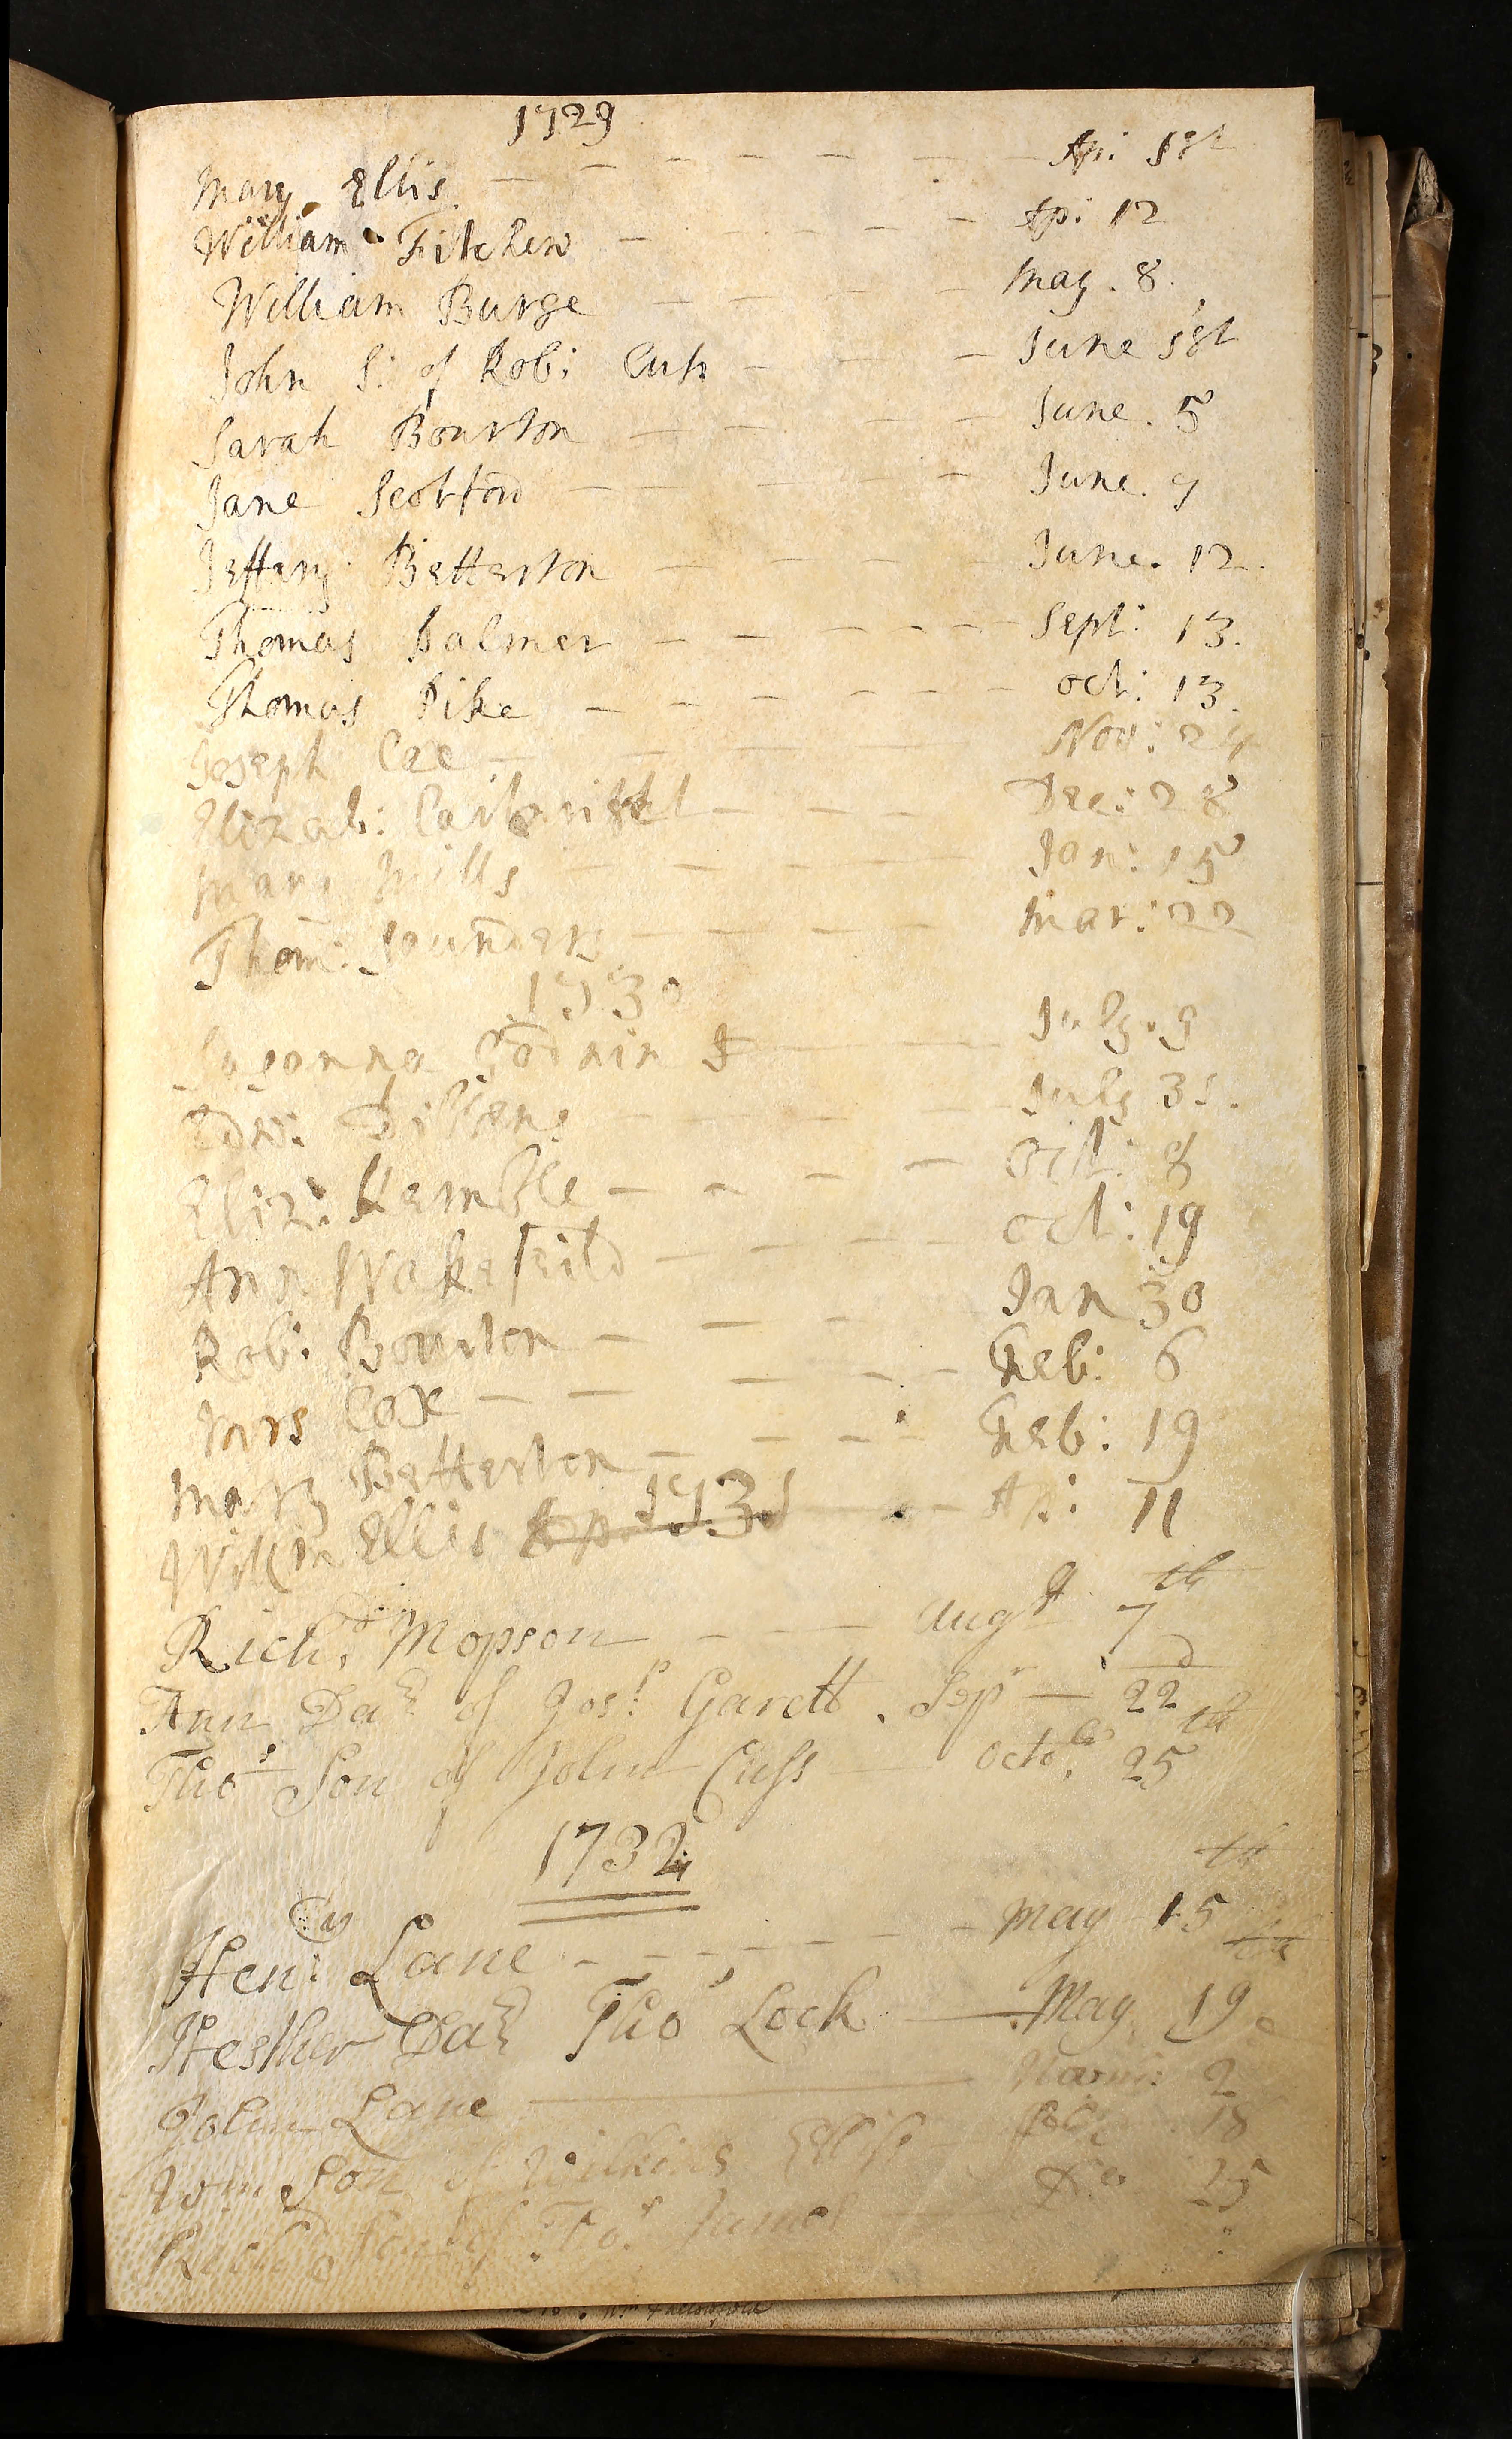 1729
Mary Ellis - - - - - - Ap: 1st
William Fitchew - - - - - Ap: 12
William Burge - - - - - May. 8.
John S: of Rob: Cuss - - - June 1st
Sarah Bourton - - - - - June. 5
Jane Scotford - - - - - June. 7
Jeffery Betterton - - - - June. 12.
Thomas Palmer - - - - - Sept: 13.
Thomas Pike - - - - - - oct: 13.
Joseph Cee - - - - Nov: 24
Elizab: Cartwright - - - Dec: 28
Mary Mills - - - - Jan: 15
Thom: Saunders - - - - Mar: 22
1730
Susanna Godwin - - - July. 9
Edw: - - - July 31.
Eliz: Kemble - - - - Oct: 8
Ann Wakefeild - - - - oct: 19
Rob: Bourton - - - Jan 30
Mrs Cox - - - - - Feb: 6
Mary Betterton - - - - Feb: 19
Ellis 1731 - - Ap: 11
Richd. Mopson - - - Augst 7th
Ann Dar of Jos:p Garett. Sepr - 22d
Thos Son of John Cuss - Octobr. 25th
1732
Hen:ry Lane - - - - - - May 15th
Hesther Dar Thos Lock - May 19th
John Lane - 2
Son of Wilkins Ellis - Do. 18
Richd Son of Thos. James - Do 25